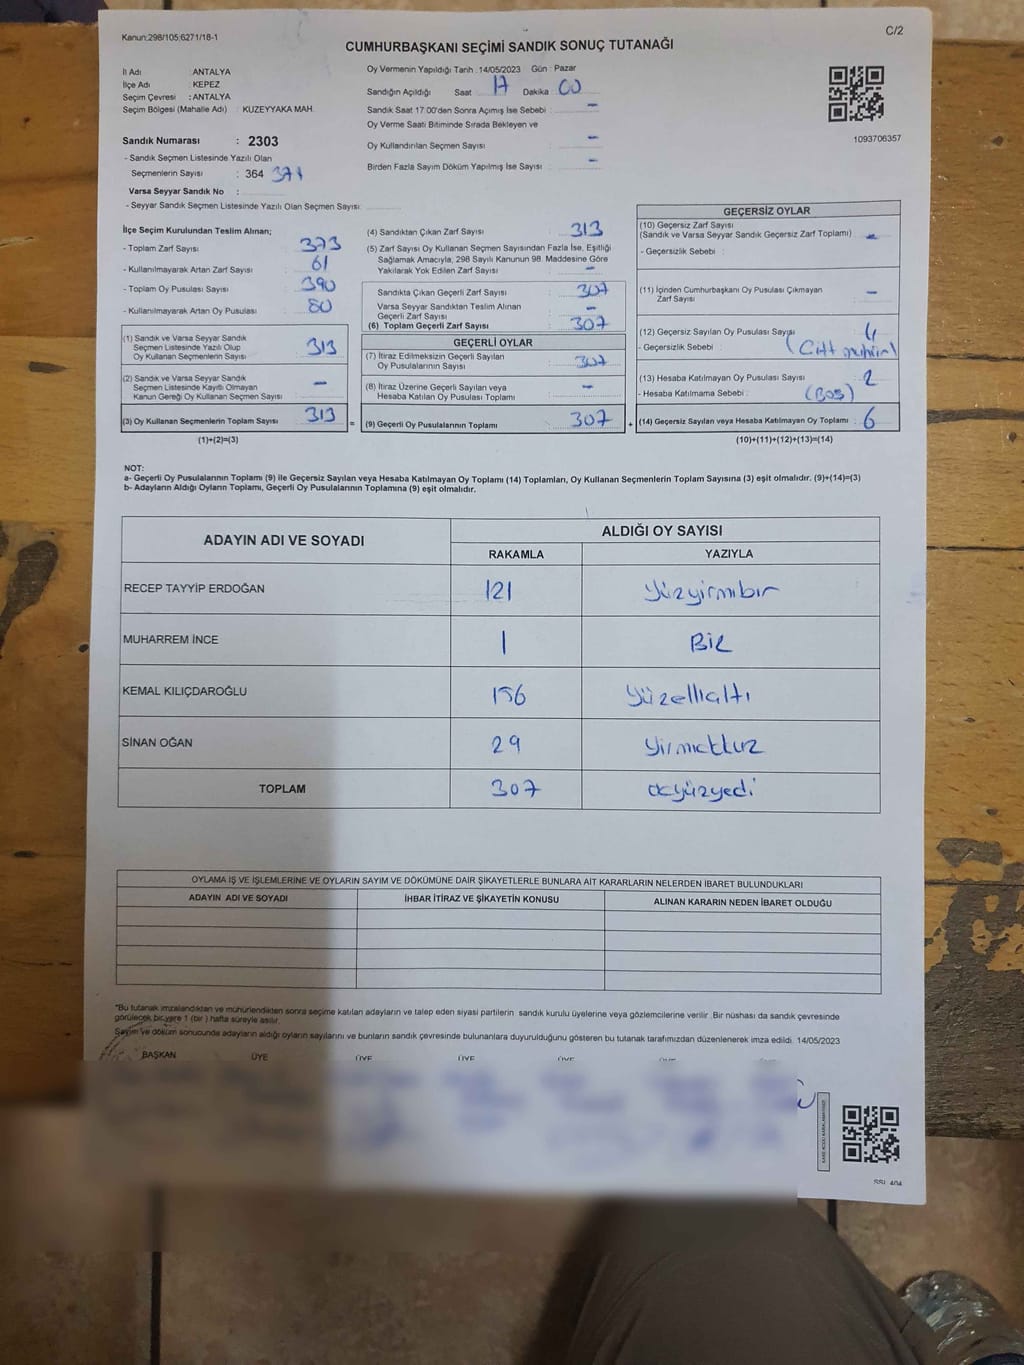 Kanun:298/105;6271/18-1
C/2
CUMHURBAŞKANI SEÇİMİ SANDIK SONUÇ TUTANAĞI
İl Adı : ANTALYA
İlçe Adı : KEPEZ
Seçim Çevresi : ANTALYA
Seçim Bölgesi (Mahalle Adı) : KUZEYYAKA MAH.
Oy Vermenin Yapıldığı Tarih :14/05/2023 Gün : Pazar
Sandığın Açıldığı Saat 17 Dakika 00
Sandık Saat 17:00'den Sonra Açımış İse Sebebi : -
Oy Verme Saati Bitiminde Sırada Bekleyen ve
Oy Kullandırılan Seçmen Sayısı : -
Birden Fazla Sayım Döküm Yapılmış İse Sayısı : -
1093706357
Sandık Numarası : 2303
- Sandık Seçmen Listesinde Yazılı Olan
Seçmenlerin Sayısı : 364 371
Varsa Seyyar Sandık No :
- Seyyar Sandık Seçmen Listesinde Yazılı Olan Seçmen Sayısı:
İlçe Seçim Kurulundan Teslim Alınan;
- Toplam Zarf Sayısı 373
- Kullanılmayarak Artan Zarf Sayısı 61
- Toplam Oy Pusulası Sayısı 390
- Kullanılmayarak Artan Oy Pusulası 80
(1) Sandık ve Varsa Seyyar Sandık
Seçmen Listesinde Yazılı Olup
Oy Kullanan Seçmenlerin Sayısı 313
(2) Sandık ve Varsa Seyyar Sandık
Seçmen Listesinde Kayıtlı Olmayan
Kanun Gereği Oy Kullanan Seçmen Sayısı -
(3) Oy Kullanan Seçmenlerin Toplam Sayısı 313
(1)+(2)=(3)
(4) Sandıktan Çıkan Zarf Sayısı 313
(5) Zarf Sayısı Oy Kullanan Seçmen Sayısından Fazla İse, Eşitliği
Sağlamak Amacıyla, 298 Sayılı Kanunun 98. Maddesine Göre
Yakılarak Yok Edilen Zarf Sayısı -
Sandıkta Çıkan Geçerli Zarf Sayısı 307
Varsa Seyyar Sandıktan Teslim Alınan
Geçerli Zarf Sayısı -
(6) Toplam Geçerli Zarf Sayısı 307
GEÇERLİ OYLAR
(7) İtiraz Edilmeksizin Geçerli Sayılan
Oy Pusulalarının Sayısı 307
(8) İtiraz Üzerine Geçerli Sayılan veya
Hesaba Katılan Oy Pusulası Toplamı -
= (9) Geçerli Oy Pusulalarının Toplamı 307 +
GEÇERSİZ OYLAR
(10) Geçersiz Zarf Sayısı
(Sandık ve Varsa Seyyar Sandık Geçersiz Zarf Toplamı) -
- Geçersizlik Sebebi :
(11) İçinden Cumhurbaşkanı Oy Pusulası Çıkmayan
Zarf Sayısı -
(12) Geçersiz Sayılan Oy Pusulası Sayısı 4
- Geçersizlik Sebebi : (Çift mühür)
(13) Hesaba Katılmayan Oy Pusulası Sayısı 2
- Hesaba Katılmama Sebebi : (Boş)
(14) Geçersiz Sayılan veya Hesaba Katılmayan Oy Toplamı : 6
(10)+(11)+(12)+(13)=(14)
NOT:
a- Geçerli Oy Pusulalarının Toplamı (9) ile Geçersiz Sayılan veya Hesaba Katılmayan Oy Toplamı (14) Toplamları, Oy Kullanan Seçmenlerin Toplam Sayısına (3) eşit olmalıdır. (9)+(14)=(3)
b- Adayların Aldığı Oyların Toplamı, Geçerli Oy Pusulalarının Toplamına (9) eşit olmalıdır.
ADAYIN ADI VE SOYADI ALDIĞI OY SAYISI
RAKAMLA YAZIYLA
RECEP TAYYİP ERDOĞAN 121 Yüzyirmibir
MUHARREM İNCE 1 BİR
KEMAL KILIÇDAROĞLU 156 Yüzellialtı
SİNAN OĞAN 29 Yirmidokuz
TOPLAM 307 üçyüzyedi
OYLAMA İŞ VE İŞLEMLERİNE VE OYLARIN SAYIM VE DÖKÜMÜNE DAİR ŞİKAYETLERLE BUNLARA AİT KARARLARIN NELERDEN İBARET BULUNDUKLARI
ADAYIN ADI VE SOYADI İHBAR İTİRAZ VE ŞİKAYETİN KONUSU ALINAN KARARIN NEDEN İBARET OLDUĞU
*Bu tutanak imzalandıktan ve mühürlendikten sonra seçime katılan adayların ve talep eden siyasi partilerin sandık kurulu üyelerine veya gözlemcilerine verilir. Bir nüshası da sandık çevresinde
görülecek bir yere 1 (bir) hafta süreyle asılır.
Sayım ve döküm sonucunda adayların aldığı oyların sayılarını ve bunların sandık çevresinde bulunanlara duyurulduğunu gösteren bu tutanak tarafımızdan düzenlenerek imza edildi. 14/05/2023
BAŞKAN ÜYE ÜYE ÜYE ÜYE